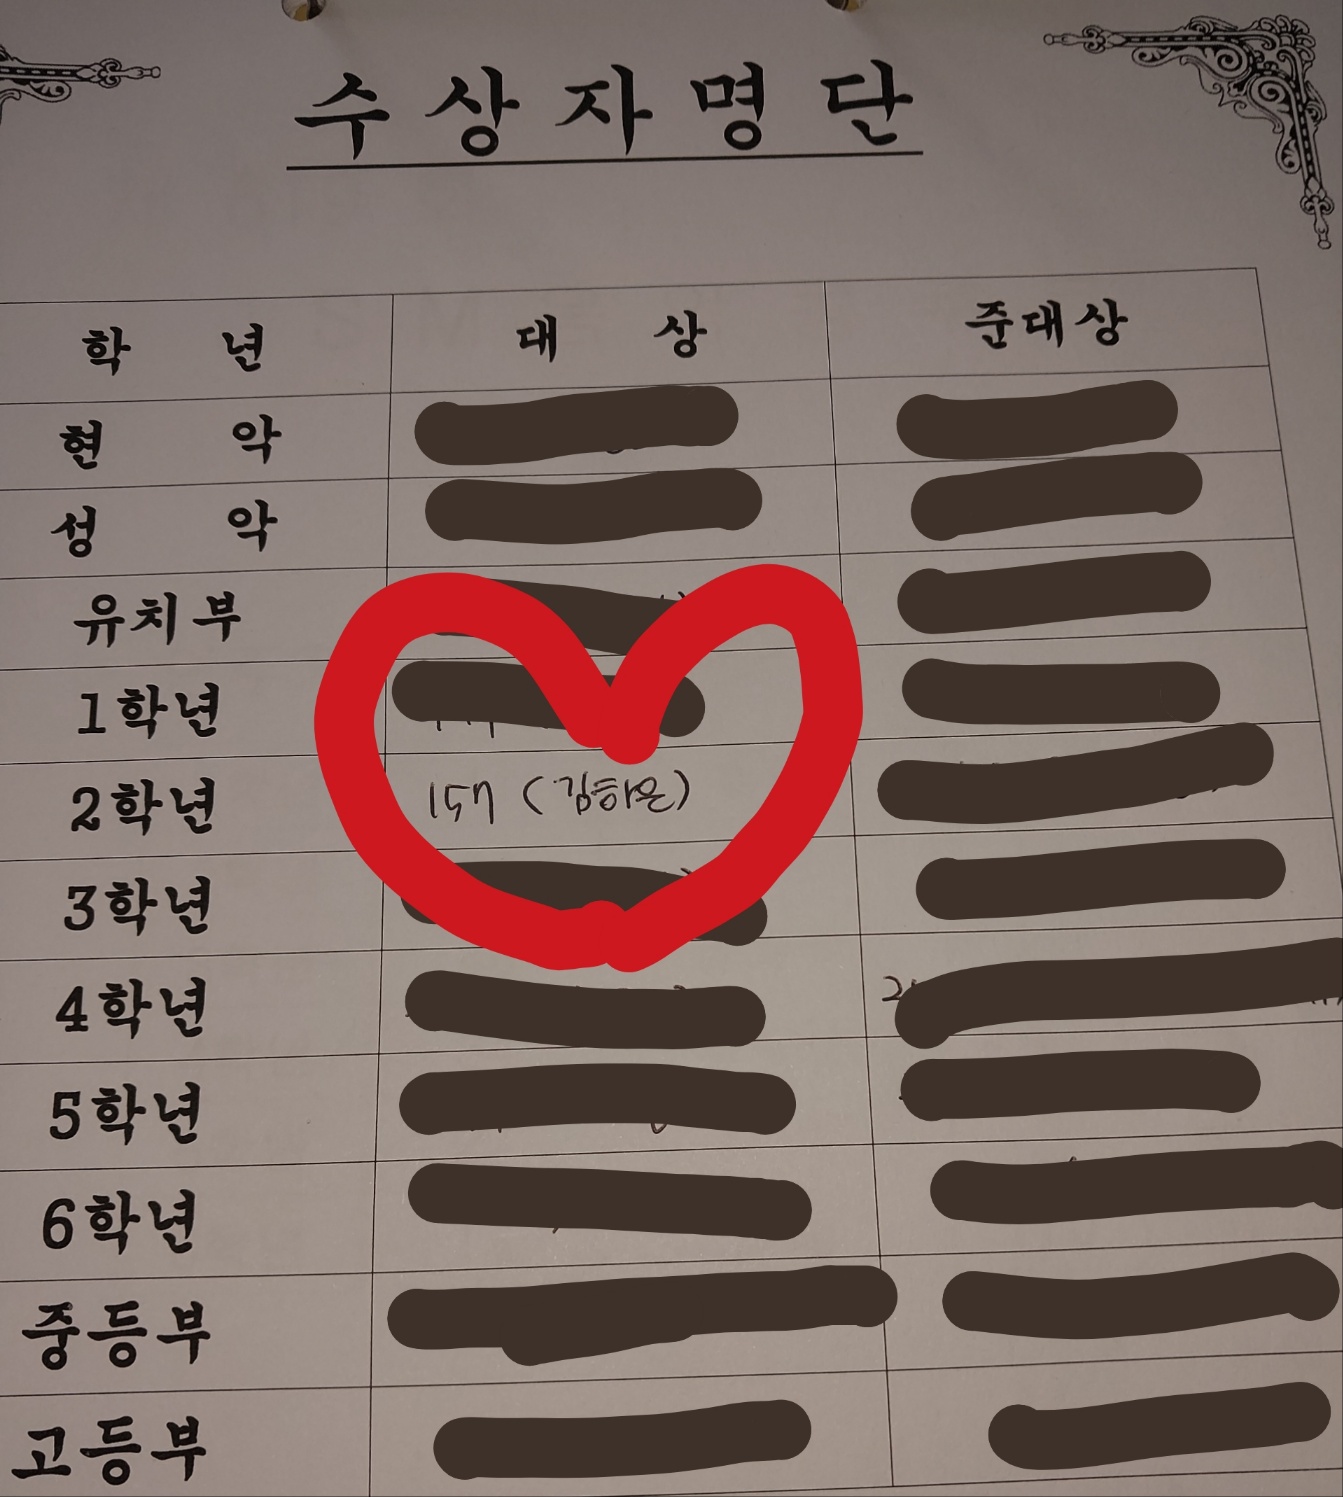 수상자명단
학 년 대 상 준대상
현 악
성 악
유치부
1학년
2학년 157 (김하은)
3학년
4학년
5학년
6학년
중등부
고등부